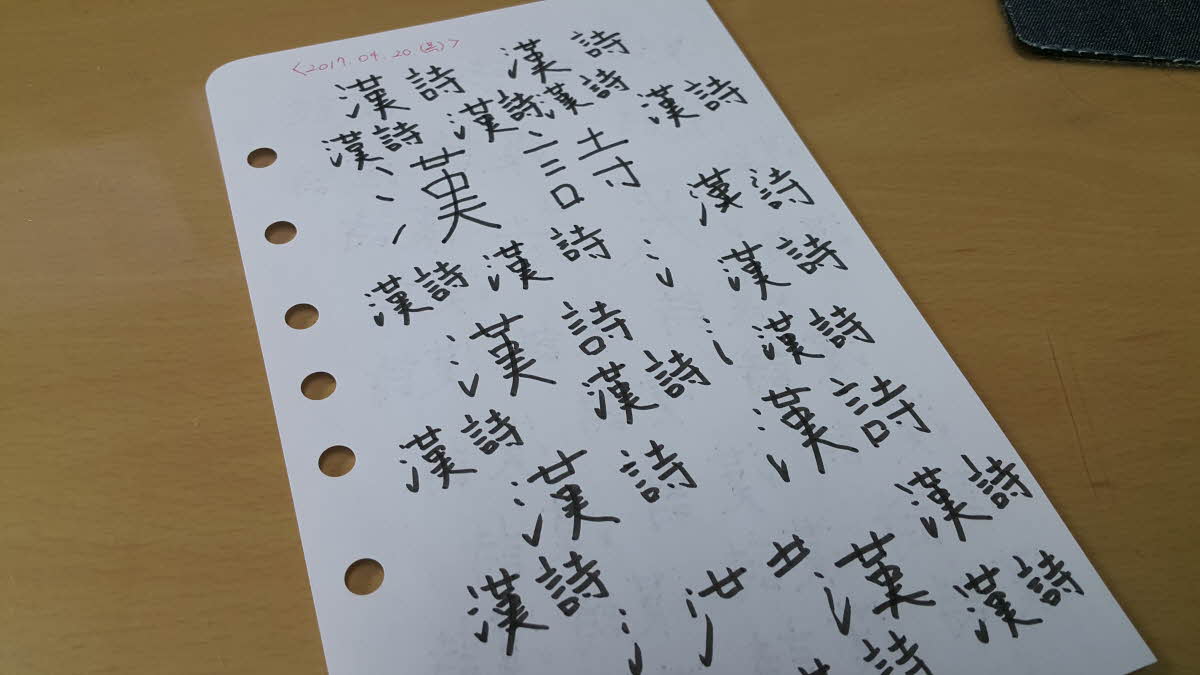 <2017.04.20.(목)>
漢詩 漢詩
漢詩 漢詩 漢詩 漢詩
漢 詩
漢詩
漢詩 漢詩 氵 漢詩
漢 詩 氵 漢詩
漢詩 漢詩
漢詩 漢詩 漢詩
漢詩
漢詩 氵 氵艹 廿 漢 漢詩
漢詩